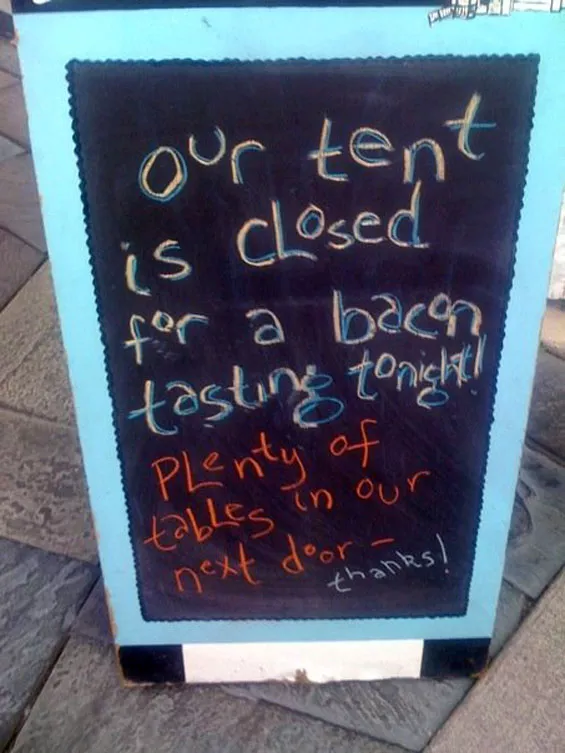 our tent
is closed
for a bacon
tasting tonight!
Plenty of
tables in our
next door -
thanks!